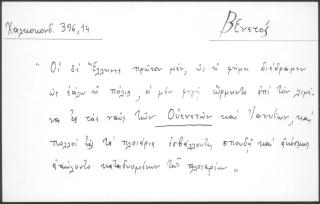 Χαλκοκονδ. 396,14
Βενετός
"Οἱ δὲ Ἕλληνες πρῶτον μέν, ὡς ἡ φήμη διέδραμεν
ὡς ἑάλω ἡ πόλις, οἱ μὲν φυγῇ ὥρμηντο ἐπὶ τὸν λιμέ-
να ἐς τὰς ναῦς τῶν Οὐενετῶν καὶ Ἰανυΐων, καὶ
πολλοὶ ἐς τὰ πλοιάρια ἐσβάλλοντες σπουδῇ καὶ ἀκόσμως
ἀπώλοντο καταδυομένων τῶν πλοιαρίων"